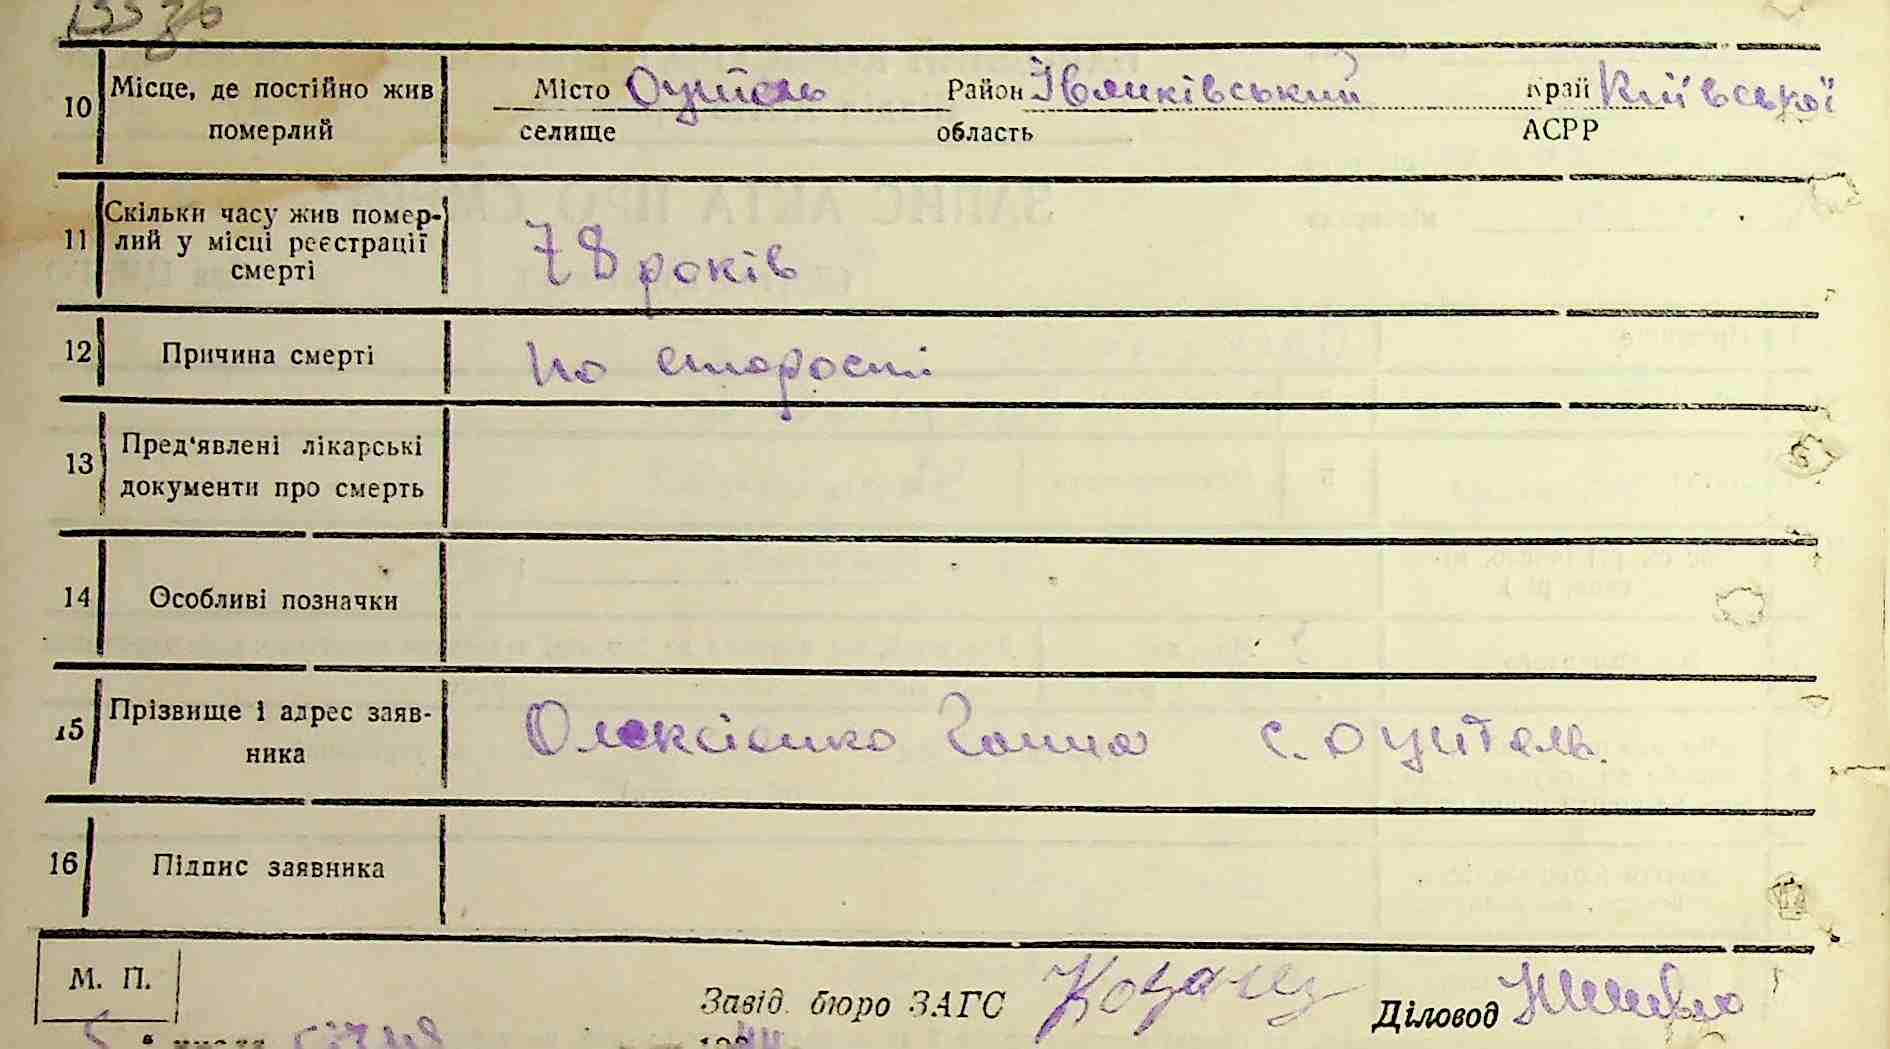 10 Місце, де постійно жив померлий
Місто Оцитель Район Іванківський Край Київської
селище область АСРР
11 Скільки часу жив помер-
лий у місці реєстрації
смерті
78 років
12 Причина смерті
по старості
13 Пред'явлені лікарські
документи про смерть
14 Особливі позначки
15 Прізвище і адрес заяв-
ника
Олексієнко Ганна с. Оцитель.
16 Підпис заявника
М. П.
Завід. бюро ЗАГС Діловод
5 січня